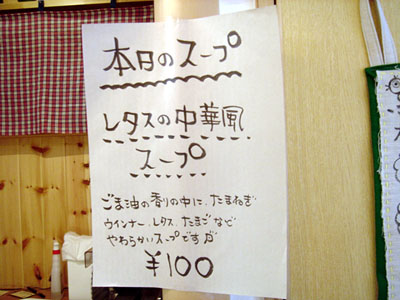 本日のスープ
レタスの中華風
スープ
ごま油の香りの中に、たまねぎ
ウインナー、レタス、たまごなど
やわらかいスープですが
¥100